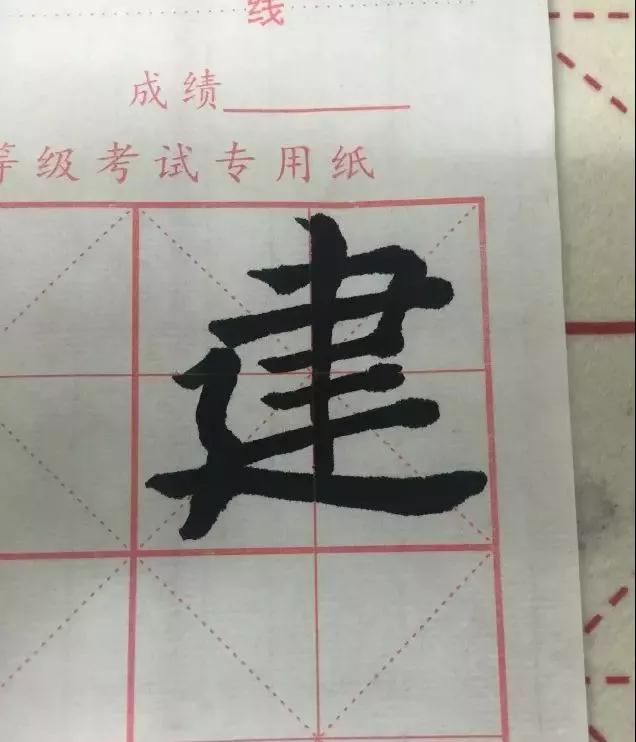 线
成绩
等级考试专用纸
建